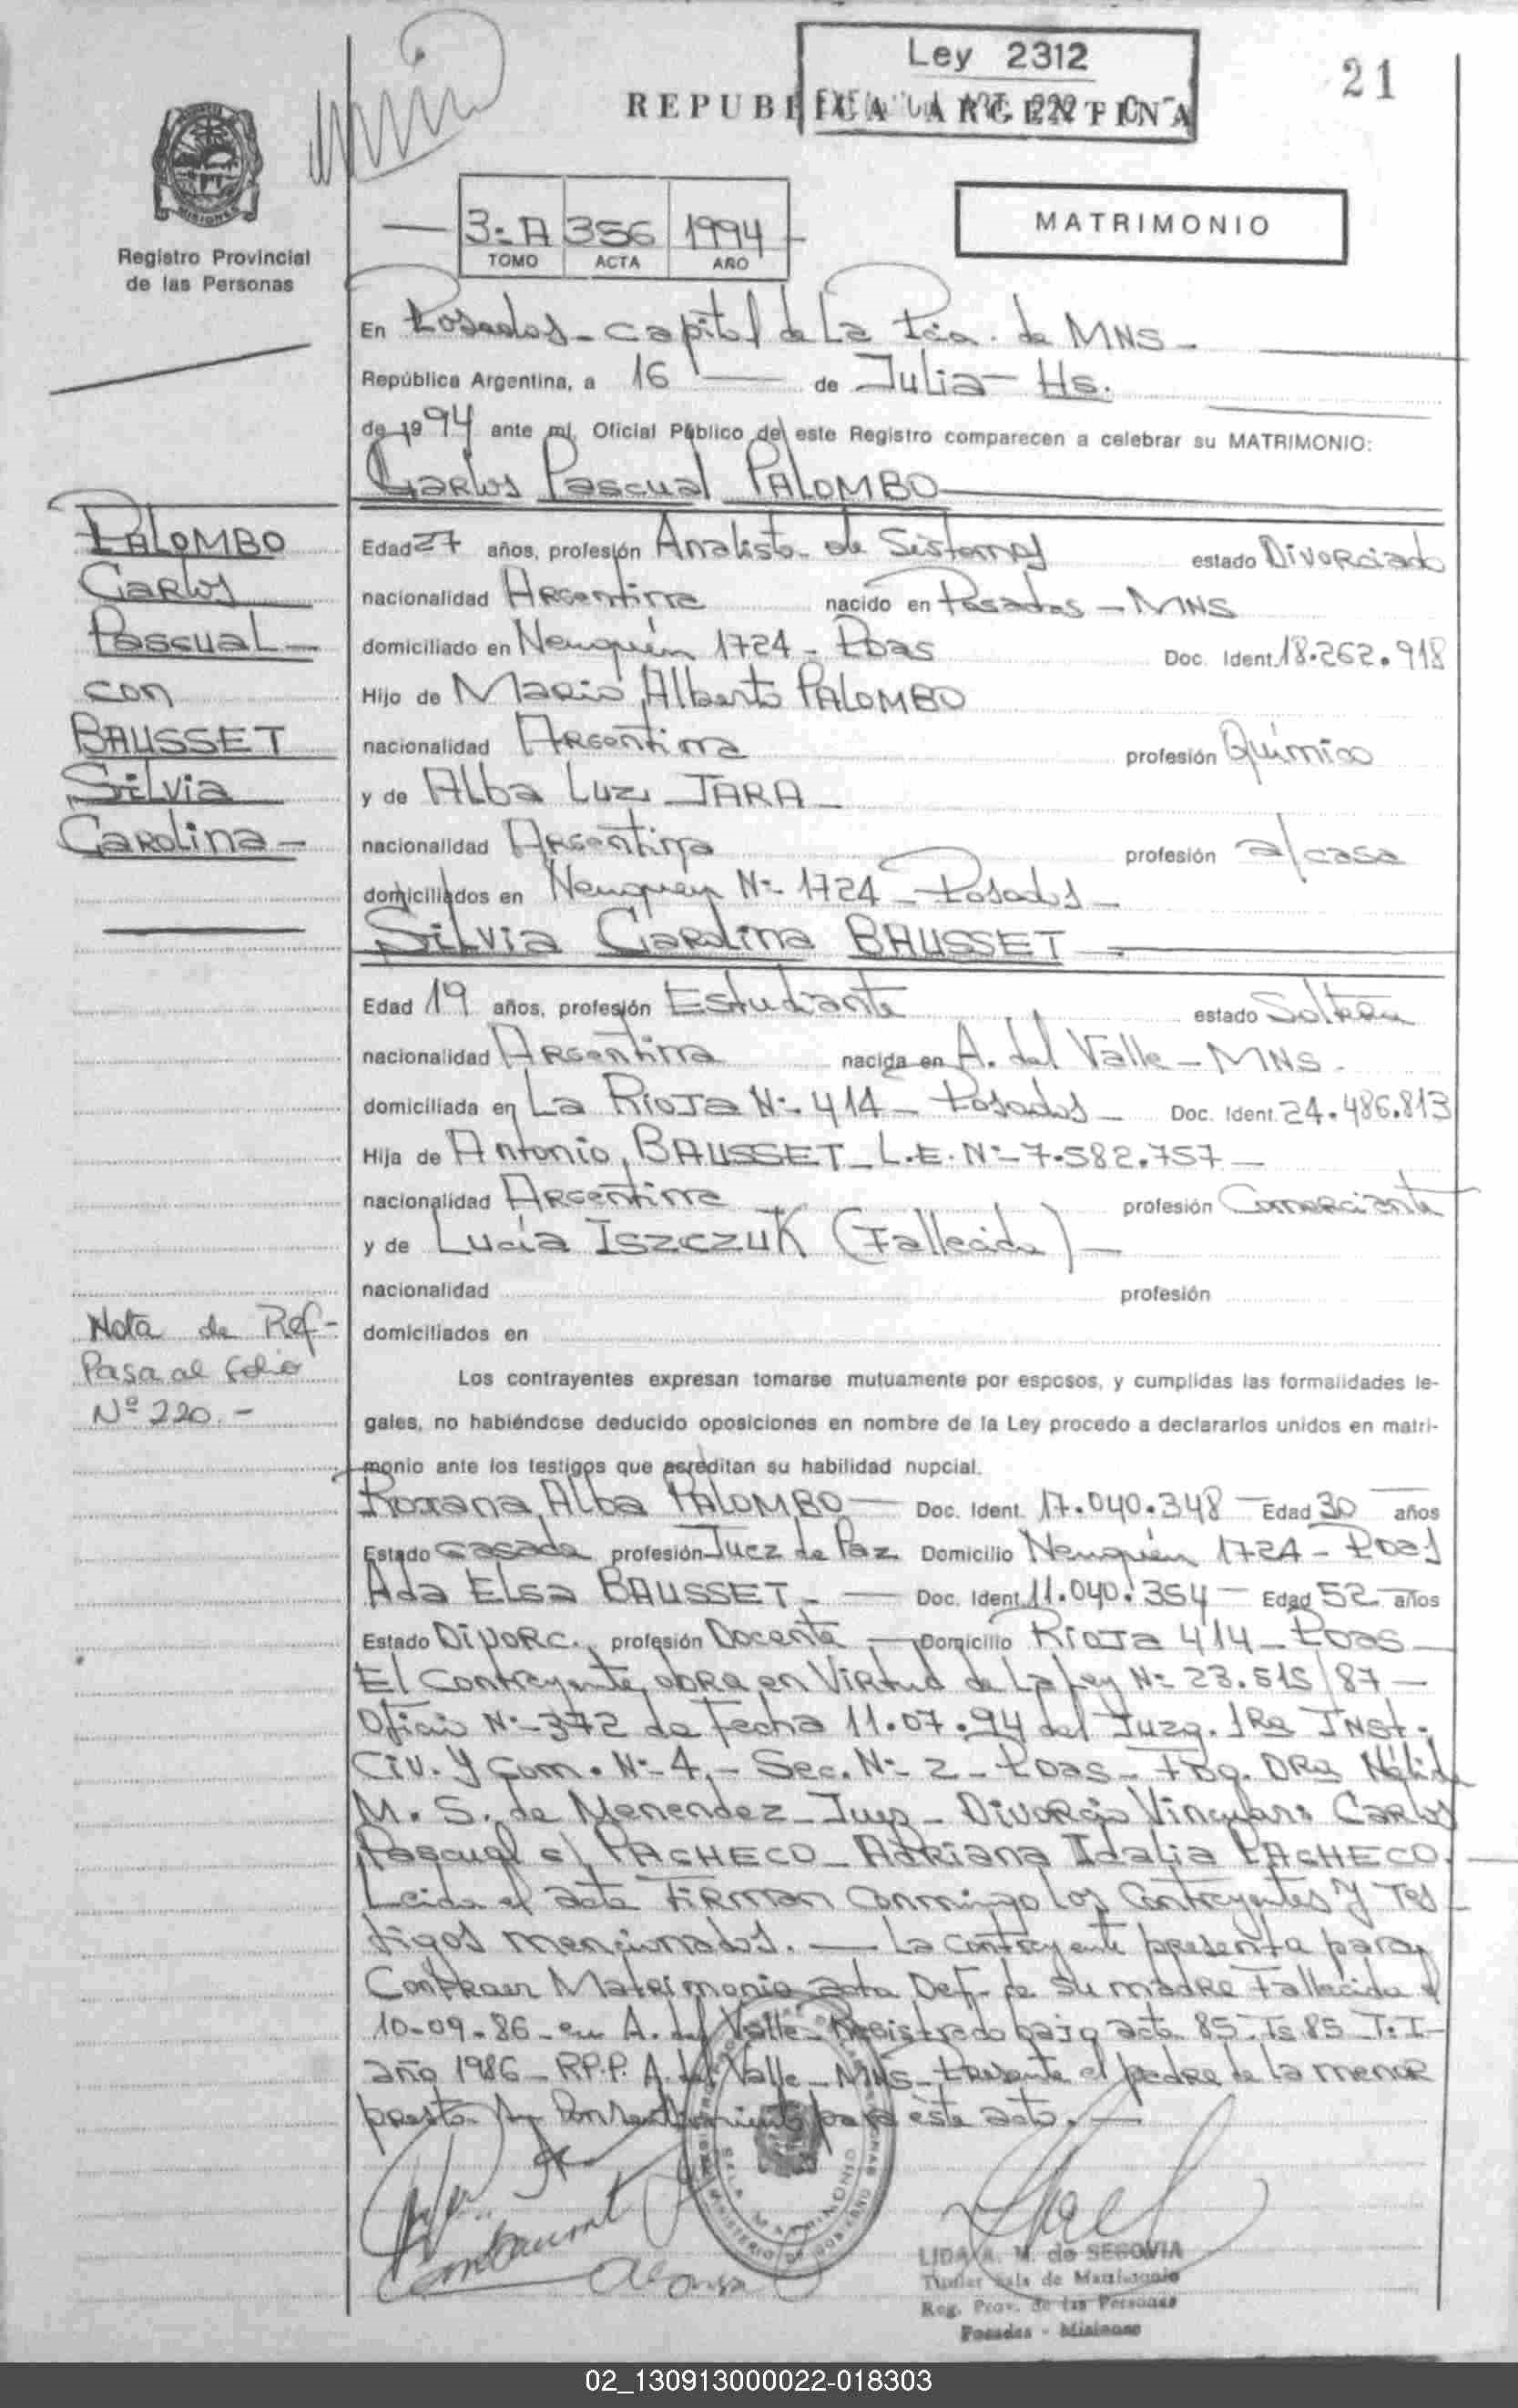 Ley 2312
REPUBLICA ARGENTINA
21
MISIONES
Registro Provincial
de las Personas
3-A 356 1994
TOMO ACTA AÑO
MATRIMONIO
En Posadas - Capital de La Pcia. de MNS -
República Argentina, a 16 de Julio - Hs.
de 1994 ante mí, Oficial Público de este Registro comparecen a celebrar su MATRIMONIO:
Carlos Pascual PALOMBO
PALOMBO
Carlos
Pascual -
con
BAUSSET
Silvia
Carolina -
Edad 27 años, profesión Analista de Sistemas estado Divorciado
nacionalidad Argentina nacido en Posadas - MNS
domiciliado en Neuquén 1724 - Pdas Doc. Ident. 18.262.918
Hijo de Mario Alberto PALOMBO
nacionalidad Argentina profesión Químico
y de Alba Luz JARA -
nacionalidad Argentina profesión a/casa
domiciliados en Neuquen Nº 1724 - Posadas -
Silvia Carolina BAUSSET
Edad 19 años, profesión Estudiante estado Soltera
nacionalidad Argentina nacida en A. del Valle - MNS -
domiciliada en La Rioja Nº 414 - Posadas - Doc. Ident. 24.486.813
Hija de Antonio BAUSSET - L.E. Nº 7.582.757 -
nacionalidad Argentina profesión Comerciante
y de Lucía ISZCZUK (Fallecida) -
nacionalidad profesión
domiciliados en
Nota de Ref-
Pasa al folio
Nº 220.-
Los contrayentes expresan tomarse mutuamente por esposos, y cumplidas las formalidades le-
gales, no habiéndose deducido oposiciones en nombre de la Ley procedo a declararlos unidos en matri-
monio ante los testigos que acreditan su habilidad nupcial.
Roxana Alba PALOMBO - Doc. Ident. 17.040.348 - Edad 30 años
Estado Casada profesión Juez de Paz Domicilio Neuquén 1724 - Pdas
Ada Elsa BAUSSET - Doc. Ident. 11.040.354 - Edad 52 años
Estado Divorc. profesión Docente - Domicilio Rioja 414 - Pdas -
El Contrayente obra en Virtud de La Ley Nº 23.515/87 -
Oficio Nº 372 de Fecha 11.07.94 del Juzg. 1Ra Inst.
Civ. y Com. Nº 4 - Sec. Nº 2 - Pdas - DRa Nélida
M. S. de Menendez - Juez - Divorcio Vincular: Carlos
Pascual c/ PACHECO - Adriana Idalia PACHECO.
Leida el acta Firman Conmigo Los Contrayentes y Tes-
tigos mencionados. - La contrayente presenta para
Contraer Matrimonio acta Def. de su madre Fallecida el
10-09-86 - en A. del Valle - Registrado bajo acta 85 - Fs 85 T: I -
año 1986 - R.P.P. A. del Valle - MNS - Presente el padre de la menor
presta su consentimiento para este acto. -
SALA MATRIMONIO
MINISTERIO DE GOBIERNO
LIDA A. M. de SEGOVIA
Titular Sala de Matrimonio
Reg. Prov. de las Personas
Posadas - Misiones
02_130913000022-018303